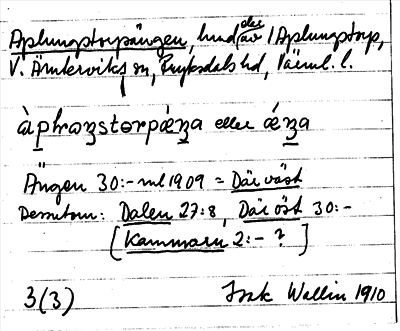 Aplungstorpängen, hund del av / Aplungstorp,
V. Ämterviks sn, Fryksdals hd, Värml. l.
àpḷoŋstorpǽŋa eller ǽŋa
Ängen 30:- ml 1909 = Där väst
Dessutom: Dalen 27:8, Där öst 30:-
[Kammarn 2:- ?]
3(3) Isak Wallin 1910